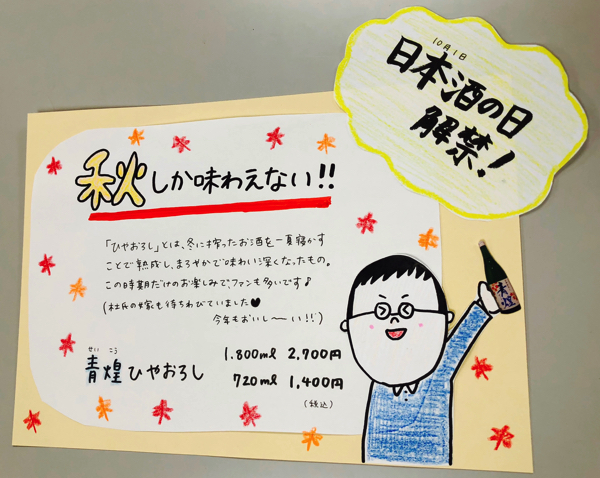 10月1日
日本酒の日
解禁!
秋しか味わえない!!
「ひやおろし」とは、冬に搾ったお酒を一夏寝かす
ことで熟成し、まろやかで味わい深くなったもの。
この時期だけのお楽しみでファンも多いです♪
(杜氏の家も待ちわびていました♥
今年もおいし〜い!!)
せい こう
青煌 ひやおろし
1.800ml 2,700円
720ml 1,400円
(税込)
青煌